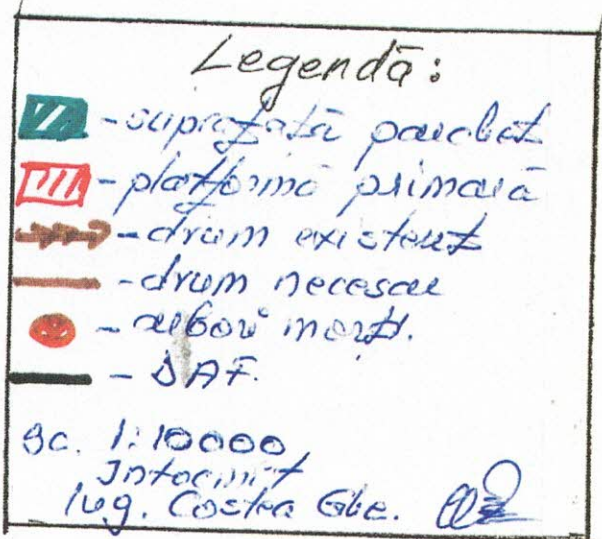 Legendă:
- suprafață parchet
- platformă primară
- drum existent
- drum necesar
- arbori morți.
- DAF.
sc. 1:10000
Intocmit
Ing. Costea Ghe.